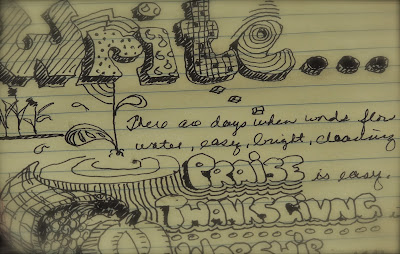 Write...
There are days when words flow
water, easy, bright, cleansing
PRAISE is easy,
THANKSGIVING
WORSHIP